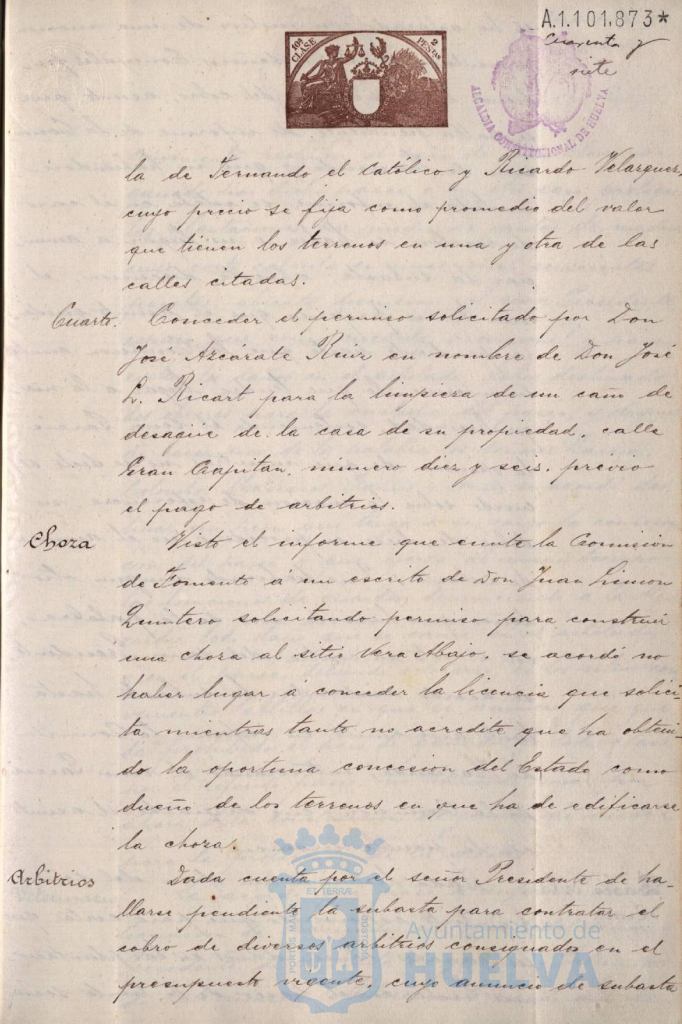 A.1.101,873*
Cuarenta y
siete
10ª CLASE
2 PESETAS
ALCALDIA CONSTITUCIONAL DE HUELVA
la de Fernando el Católico y Ricardo Velazquez,
cuyo precio se fija como promedio del valor
que tienen los terrenos en una y otra de las
calles citadas.
Cuarto. Conceder el permiso solicitado por Don
José Azcárate Ruiz en nombre de Don José
L. Ricart para la limpieza de un caño de
desagüe de la casa de su propiedad, calle
Gran Capitan, número diez y seis, previo
el pago de arbitrios.
Choza Visto el informe que emite la Comisión
de Fomento á un escrito de Don Juan Limon
Quintero solicitando permiso para construir
una choza al sitio Vera Abajo, se acordó no
haber lugar á conceder la licencia que solici-
ta mientras tanto no acredite que ha obteni-
do la oportuna concesion del Estado como
dueño de los terrenos en que ha de edificarse
la choza.
Arbitrios Dada cuenta por el señor Presidente de ha-
llarse pendiente la subasta para contratar el
cobro de diversos arbitrios consignados en el
presupuesto vigente, cuyo anuncio de subasta
Ayuntamiento de
HUELVA